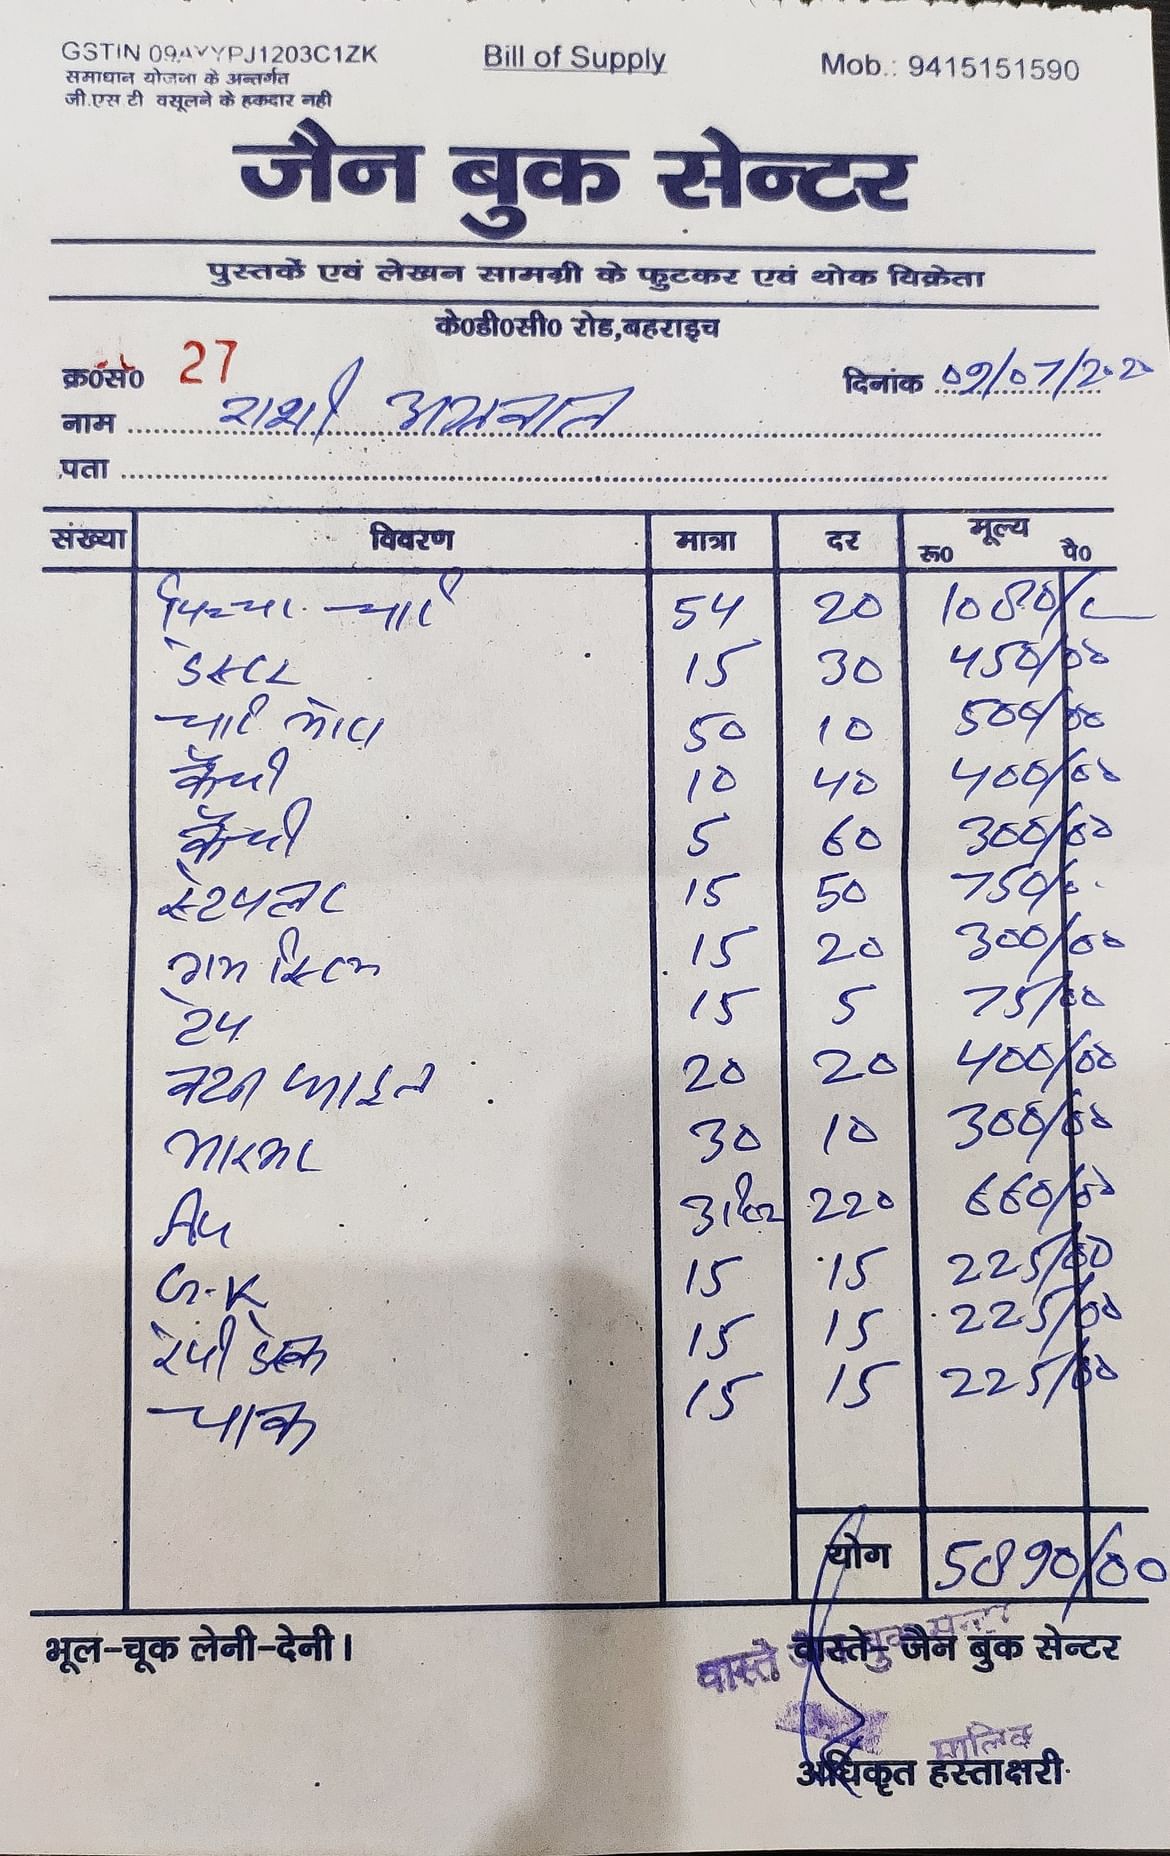 GSTIN 09AYYPJ1203C1ZK Bill of Supply Mob.: 9415151590
समाधान योजना के अन्तर्गत
जी.एस.टी वसूलने के हकदार नही
जैन बुक सेन्टर
पुस्तकें एवं लेखन सामग्री के फुटकर एवं थोक विक्रेता
के0डी0सी0 रोड,बहराइच
क्र0सं0 27 दिनांक 09/07/2020
नाम राशी अग्रवाल
पता
संख्या विवरण मात्रा दर मूल्य रू0 पै0
चार्ट 54 20 1080/-
डस्टर 15 30 450/00
चार्ट 50 10 500/00
कैंची 10 40 400/00
कैंची 5 60 300/00
स्टेपलर 15 50 750/-
गम स्टिक 15 20 300/00
टेप 15 5 75/00
बटन फाइल 20 20 400/00
मारकर 30 10 300/00
220 660/00
G.K 15 15 225/00
15 15 225/00
चाक 15 15 225/00
योग 5890/00
भूल-चूक लेनी-देनी। वास्ते- जैन बुक सेन्टर
वास्ते
मालिक
अधिकृत हस्ताक्षरी